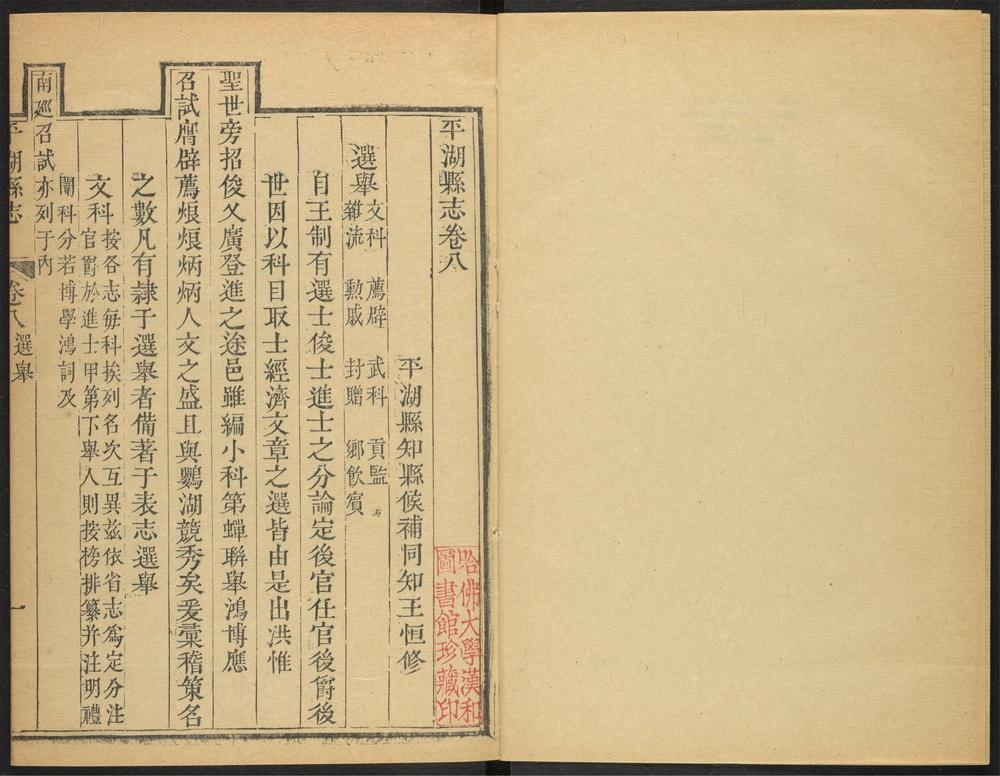 平湖縣志卷八
平湖縣知縣候補同知王恒修
選舉
文科 薦辟 武科 貢監
雜流 勲戚 封贈 鄉飲賓
自王制有選士俊士進士之分論定後官任官後爵後
世因以科目取士經濟文章之選皆由是出洪惟
聖世旁招俊乂廣登進之途邑雖編小科第蟬聯舉鴻博應
召試膺辟薦烺烺炳炳人文之盛且與鸚湖競秀矣爰彙稽策名
之數凡有隷于選舉者備著于表志選舉
文科
按各志每科挨列名次互異兹依省志爲定分注
官爵於進士甲第下舉人則按榜排纂并注明禮
闈科分若博學鴻詞及
南廵召試亦列于内
平湖縣志
卷八 選舉
一
哈佛大學漢和
圖書館珍藏印